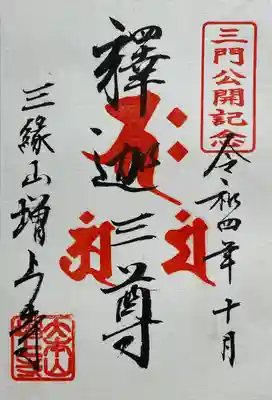 三門公開記念
令和四年十月
釋迦三尊
三緣山增上寺
大本山